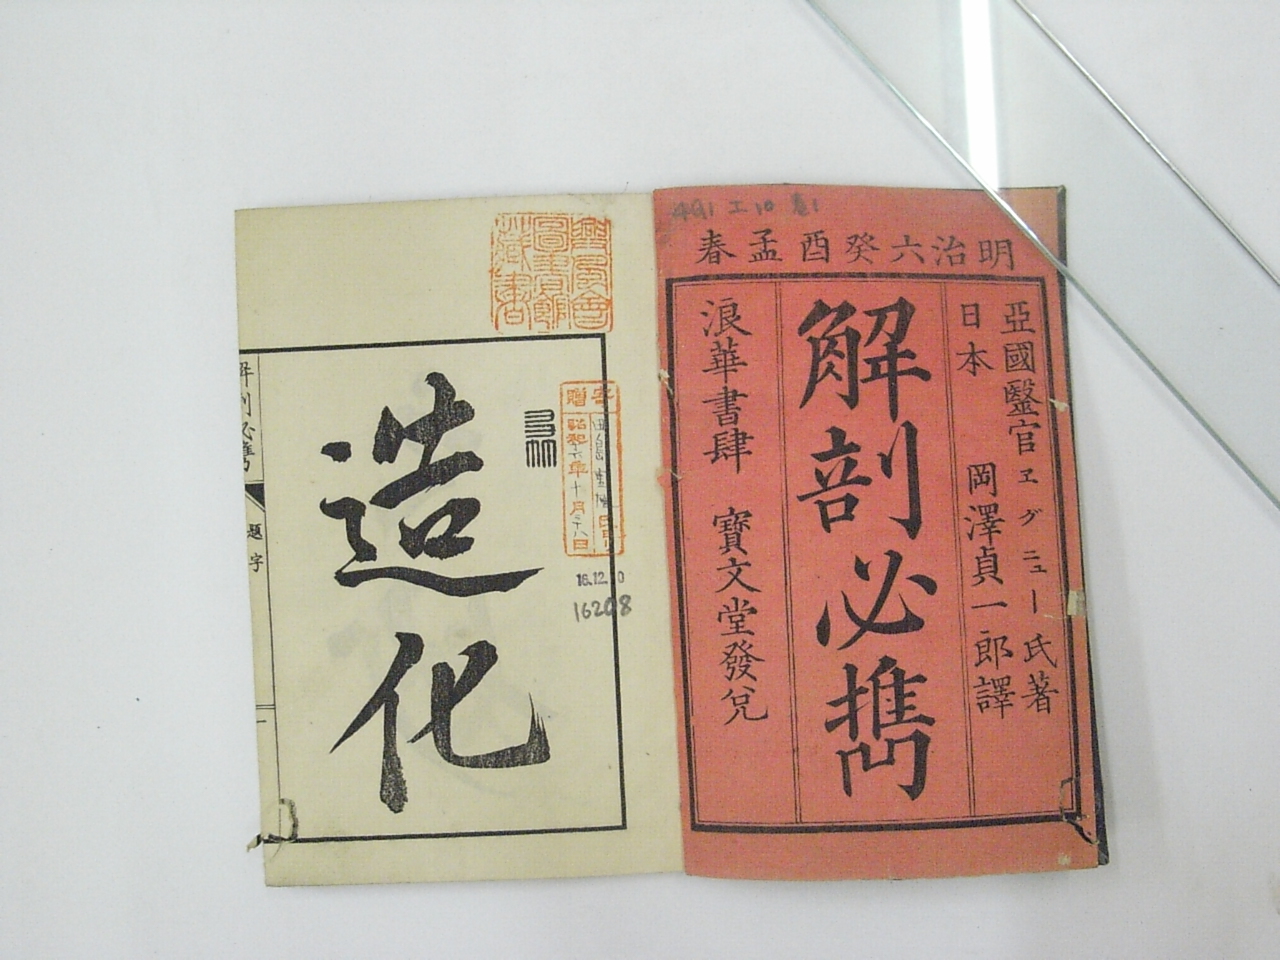 明治六癸酉孟春
亞國毉官ヱグニュー氏著
日本 岡澤貞一郎譯
解剖必攜
浪華書肆 寶文堂發兌
491 エ10
造化
寄贈
昭和十六年十月二十八日
16.12.10
16208
解剖必攜
題字
一